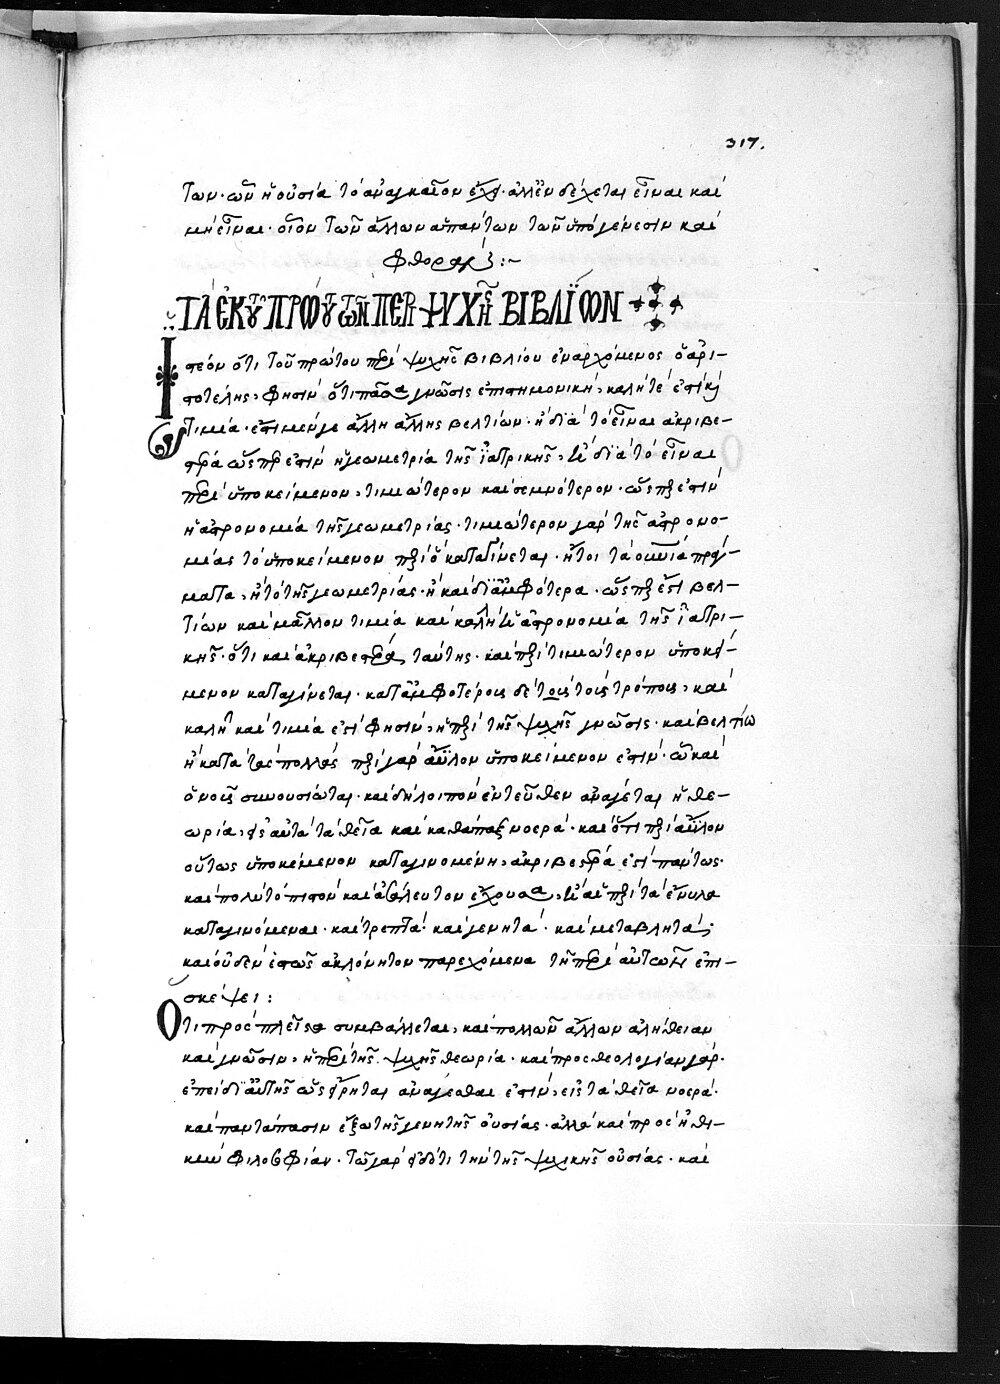 317.
των· ὧν ἡ οὐσία τὸ ἀναγκαῖον ἔχει· ἀλλ' ἐνδέχεται εἶναι καὶ
μὴ εἶναι· οἷον τῶν ἄλλων ἁπάντων τῶν ὑπὸ γένεσιν καὶ
φθοράν :~
ΤᾺ ἘΚ ΤΟΥ͂ ΠΡΏΤΟΥ ΤΩ͂Ν ΠΕΡῚ ΨΥΧΗ͂Σ ΒΙΒΛΊΩΝ
Ἰστέον ὅτι τοῦ πρώτου περὶ ψυχῆς βιβλίου ἐναρχόμενος ὁ ἀρι-
στοτέλης, φησὶν ὅτι πᾶσα γνῶσις ἐπιστημονική, καλή τέ ἐστι καὶ
τιμία· ἔστι μέν γε ἄλλη ἄλλης βελτίων· ἢ διὰ τὸ εἶναι ἀκριβε-
στέρα ὥσπερ ἐστὶν ἡ γεωμετρία τῆς ἰατρικῆς, ἢ διὰ τὸ εἶναι
περὶ ὑποκείμενον, τιμιώτερον καὶ σεμνότερον· ὥσπερ ἐστὶν
ἡ ἀστρονομία τῆς γεωμετρίας· τιμιώτερον γὰρ τῆς ἀστρονο-
μίας τὸ ὑποκείμενον περὶ ὃ καταγίνεται· ἤτοι τὰ οὐράνια πράγ-
ματα, ἢ τὸ τῆς γεωμετρίας· ἢ καὶ δι' ἀμφότερα· ὥσπερ ἐστὶ βελ-
τίων καὶ μᾶλλον τιμία καὶ καλὴ ἡ ἀστρονομία τῆς ἰατρι-
κῆς· ὅτι καὶ ἀκριβεστέρα ταύτης· καὶ περὶ τιμιώτερον ὑποκεί-
μενον καταγίνεται· κατ' ἀμφοτέρους δὲ τοὺς τοιούς τρόπους, καὶ
καλὴ καὶ τιμία ἐστὶ φησὶν, ἡ περὶ τῆς ψυχῆς γνῶσις· καὶ βελτίω
ἢ κατὰ τὰς πολλάς περὶ γὰρ ἄϋλον ὑποκείμενον ἐστιν· ᾧ καὶ
ὁ νοῦς συνουσίωται· καὶ δὴ λοιπὸν ἐντεῦθεν ἀνάγεται ἡ θε-
ωρία, εἰς αὐτὰ τὰ θεῖα καὶ καθάπαξ νοερά· καὶ ὅτι περὶ ἄϋλον
οὕτως ὑποκείμενον καταγινομένη, ἀκριβεστέρα ἐστὶ πάντως·
καὶ πολὺ τὸ πιστὸν καὶ ἀσάλευτον ἔχουσα, ἢ αἱ περὶ τὰ ἔνυλα
καταγινόμεναι· καὶ τρεπτά· καὶ γενητά· καὶ μεταβλητά;
καὶ οὐδὲν ἑστὼς ἀκλόνητον παρεχόμενα τῇ περὶ αὐτῶν ἐπι-
σκέψει :
Ὅτι πρὸς πλεῖστα συμβάλλεται, καὶ πολλῶν ἄλλων ἀλήθειαν
καὶ γνῶσιν, ἡ περὶ τῆς ψυχῆς θεωρία· καὶ πρὸς θεολογίαν γάρ·
ἐπεὶ δι' αὐτῆς ὡς εἴρηται ἀνάγεσθαι ἐστιν, εἰς τὰ θεῖα νοερά·
καὶ παντάπασιν ἔξω τῆς γενητῆς οὐσίας· ἀλλὰ καὶ πρὸς ἠθι-
κὴν φιλοσοφίαν· τῷ γὰρ εἰδότι τὴν τῆς ψυχικῆς οὐσίας· καὶ